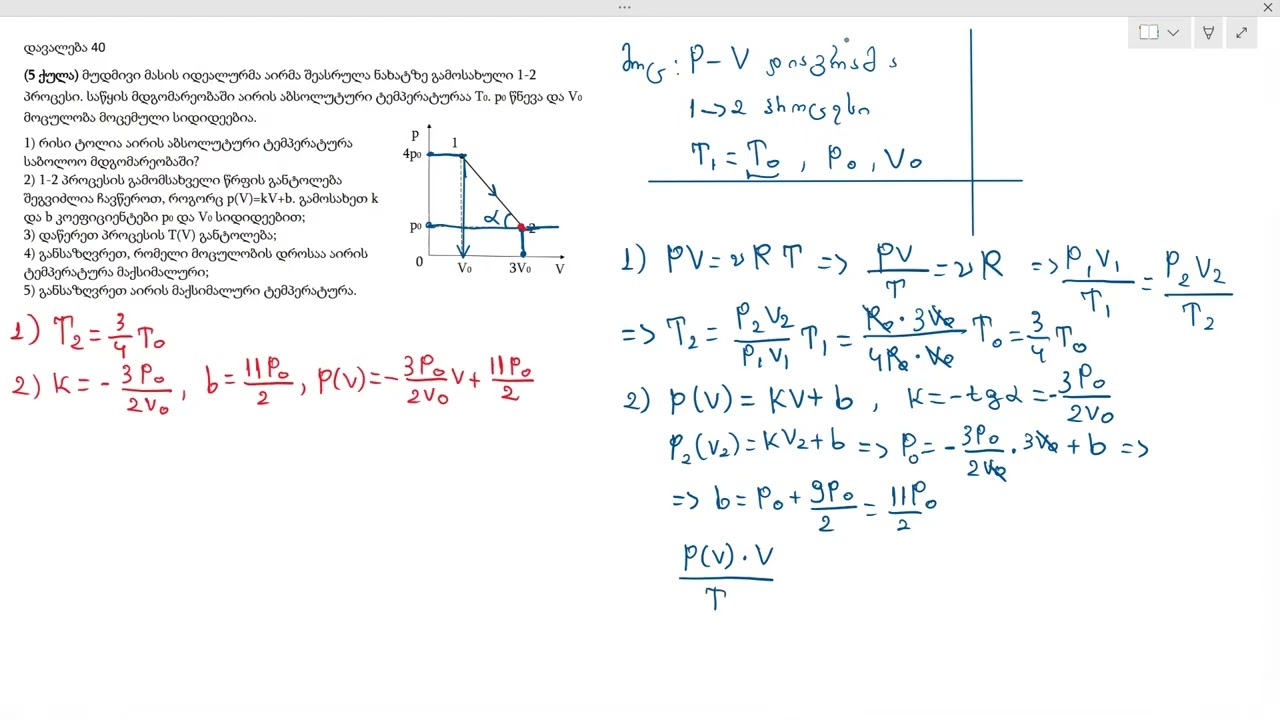 დავალება 40
(5 ქულა) მუდმივი მასის იდეალურმა აირმა შეასრულა ნახატზე გამოსახული 1-2
პროცესი. საწყის მდგომარეობაში აირის აბსოლუტური ტემპერატურაა T₀. p₀ წნევა და V₀
მოცულობა მოცემული სიდიდეებია.
1) რისი ტოლია აირის აბსოლუტური ტემპერატურა
საბოლოო მდგომარეობაში?
2) 1-2 პროცესის გამომსახველი წრფის განტოლება
შეგვიძლია ჩავწეროთ, როგორც p(V)=kV+b. გამოსახეთ k
და b კოეფიციენტები p₀ და V₀ სიდიდეებით;
3) დაწერეთ პროცესის T(V) განტოლება;
4) განსაზღვრეთ, რომელი მოცულობის დროსაა აირის
ტემპერატურა მაქსიმალური;
5) განსაზღვრეთ აირის მაქსიმალური ტემპერატურა.
p
4p₀
1
α
p₀
2
0
V₀
3V₀
V
1) T₂ = 3/4 T₀
2) K = - 3P₀/2V₀, b = 11P₀/2, P(V) = - 3P₀/2V₀ V + 11P₀/2
მოც: P – V დიაგრამა
1 → 2 პროცესი
T₁ = T₀, P₀, V₀
1) PV = νRT => PV/T = νR => P₁V₁/T₁ = P₂V₂/T₂
=> T₂ = P₂V₂/P₁V₁ T₁ = P₀·3V₀/4P₀·V₀ T₀ = 3/4 T₀
2) P(V) = KV + b, K = -tgα = - 3P₀/2V₀
P₂(V₂) = KV₂ + b => P₀ = - 3P₀/2V₀ · 3V₀ + b =>
=> b = P₀ + 9P₀/2 = 11P₀/2
P(V)·V/T